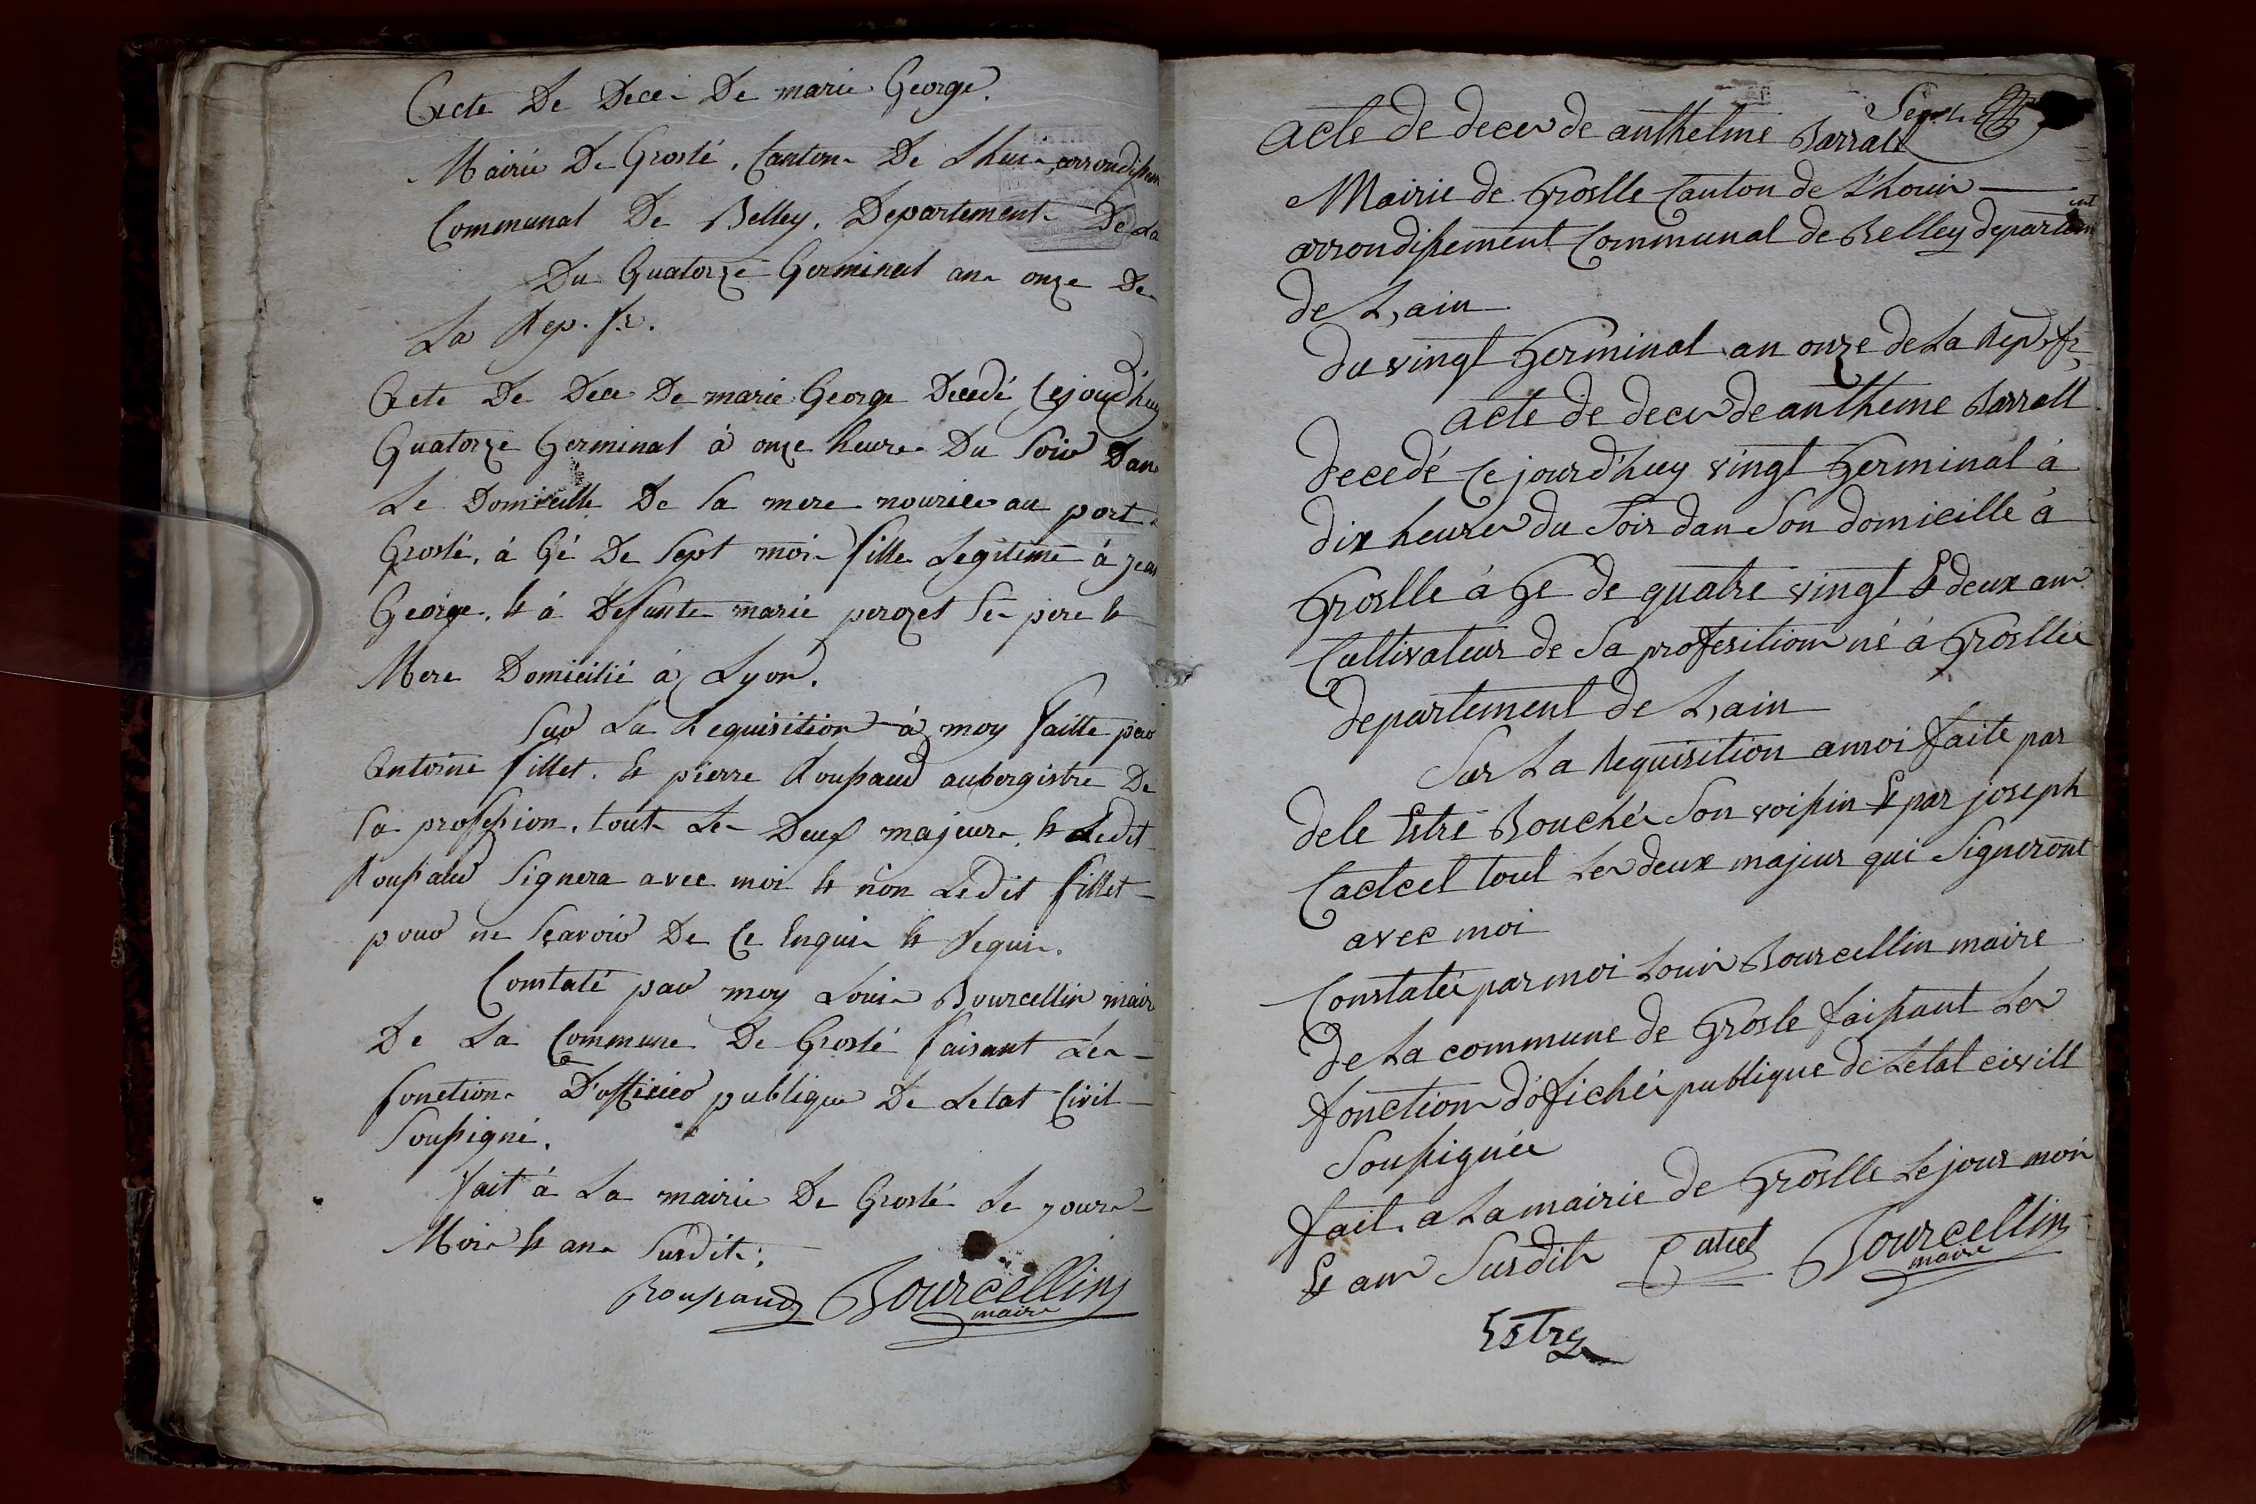 Acte De Deces De marie George.
Mairie De Groslé, Canton De Lhuis, arrondissem
Communal De Belley, Departement De La
Du Quatorze Germinal an onze De
La Rep. fr.
Acte De Deces De marie George Decedé Cejourd'huy
Quatorze Germinal à onze heures Du Soir Dans
Le Domicille De Sa mere nourice au port
Groslé, à Gé De Sept mois fille Legitime à jean
George, & à Defunte marie perozet Ses pere &
Mere Domicilié à Lyon.
Sur La Requisition à moy faitte par
Antoine fillet, & pierre Roupaud aubergistre De
Sa profession, tout Les Deux majeurs, & Ledit
Roupaud Signera avec moi & non Ledit fillet
pour ne Sçavoir De Ce Enquis & Requis.
Constaté par moy Louis Bourcellin maire
De La Commune De Groslé faisant Les
fonctions D'officier publique De Letat Civil
Soussigné.
fait à La mairie De Groslé Le jours
Mois & ans Susdits.
Roupaud Bourcellin
maire
acte de deces de anthelme Barratt
Mairie de Groslle Canton de Lhouis
arrondissement Communal de Belley departement
de L,ain
du vingt Germinal an onze de La Rep. fr
acte de deces de antheme Barratt
decedé Cejourd'huy vingt Germinal à
dix heures du Soir dan Son domicille à
Groslle à Ge de quatre vingt & deux ans
Cultivateur de Sa profesition né à Grosllee
departement de L,ain
Sur La Requisition amoi faite par
dele Estre Bouchér Son voissin & par joseph
Cactcel tout Les deux majeur qui Signeront
avec moi
Constatée par moi Louis Bourcellin maire
de La commune de Grosle faissant Les
fonctions d'ofichér publique de Letat civill
Soussignée
fait a La mairie de Groslle Le jour mois
& ans Susdits Catcel Bourcellin
maire
Estre